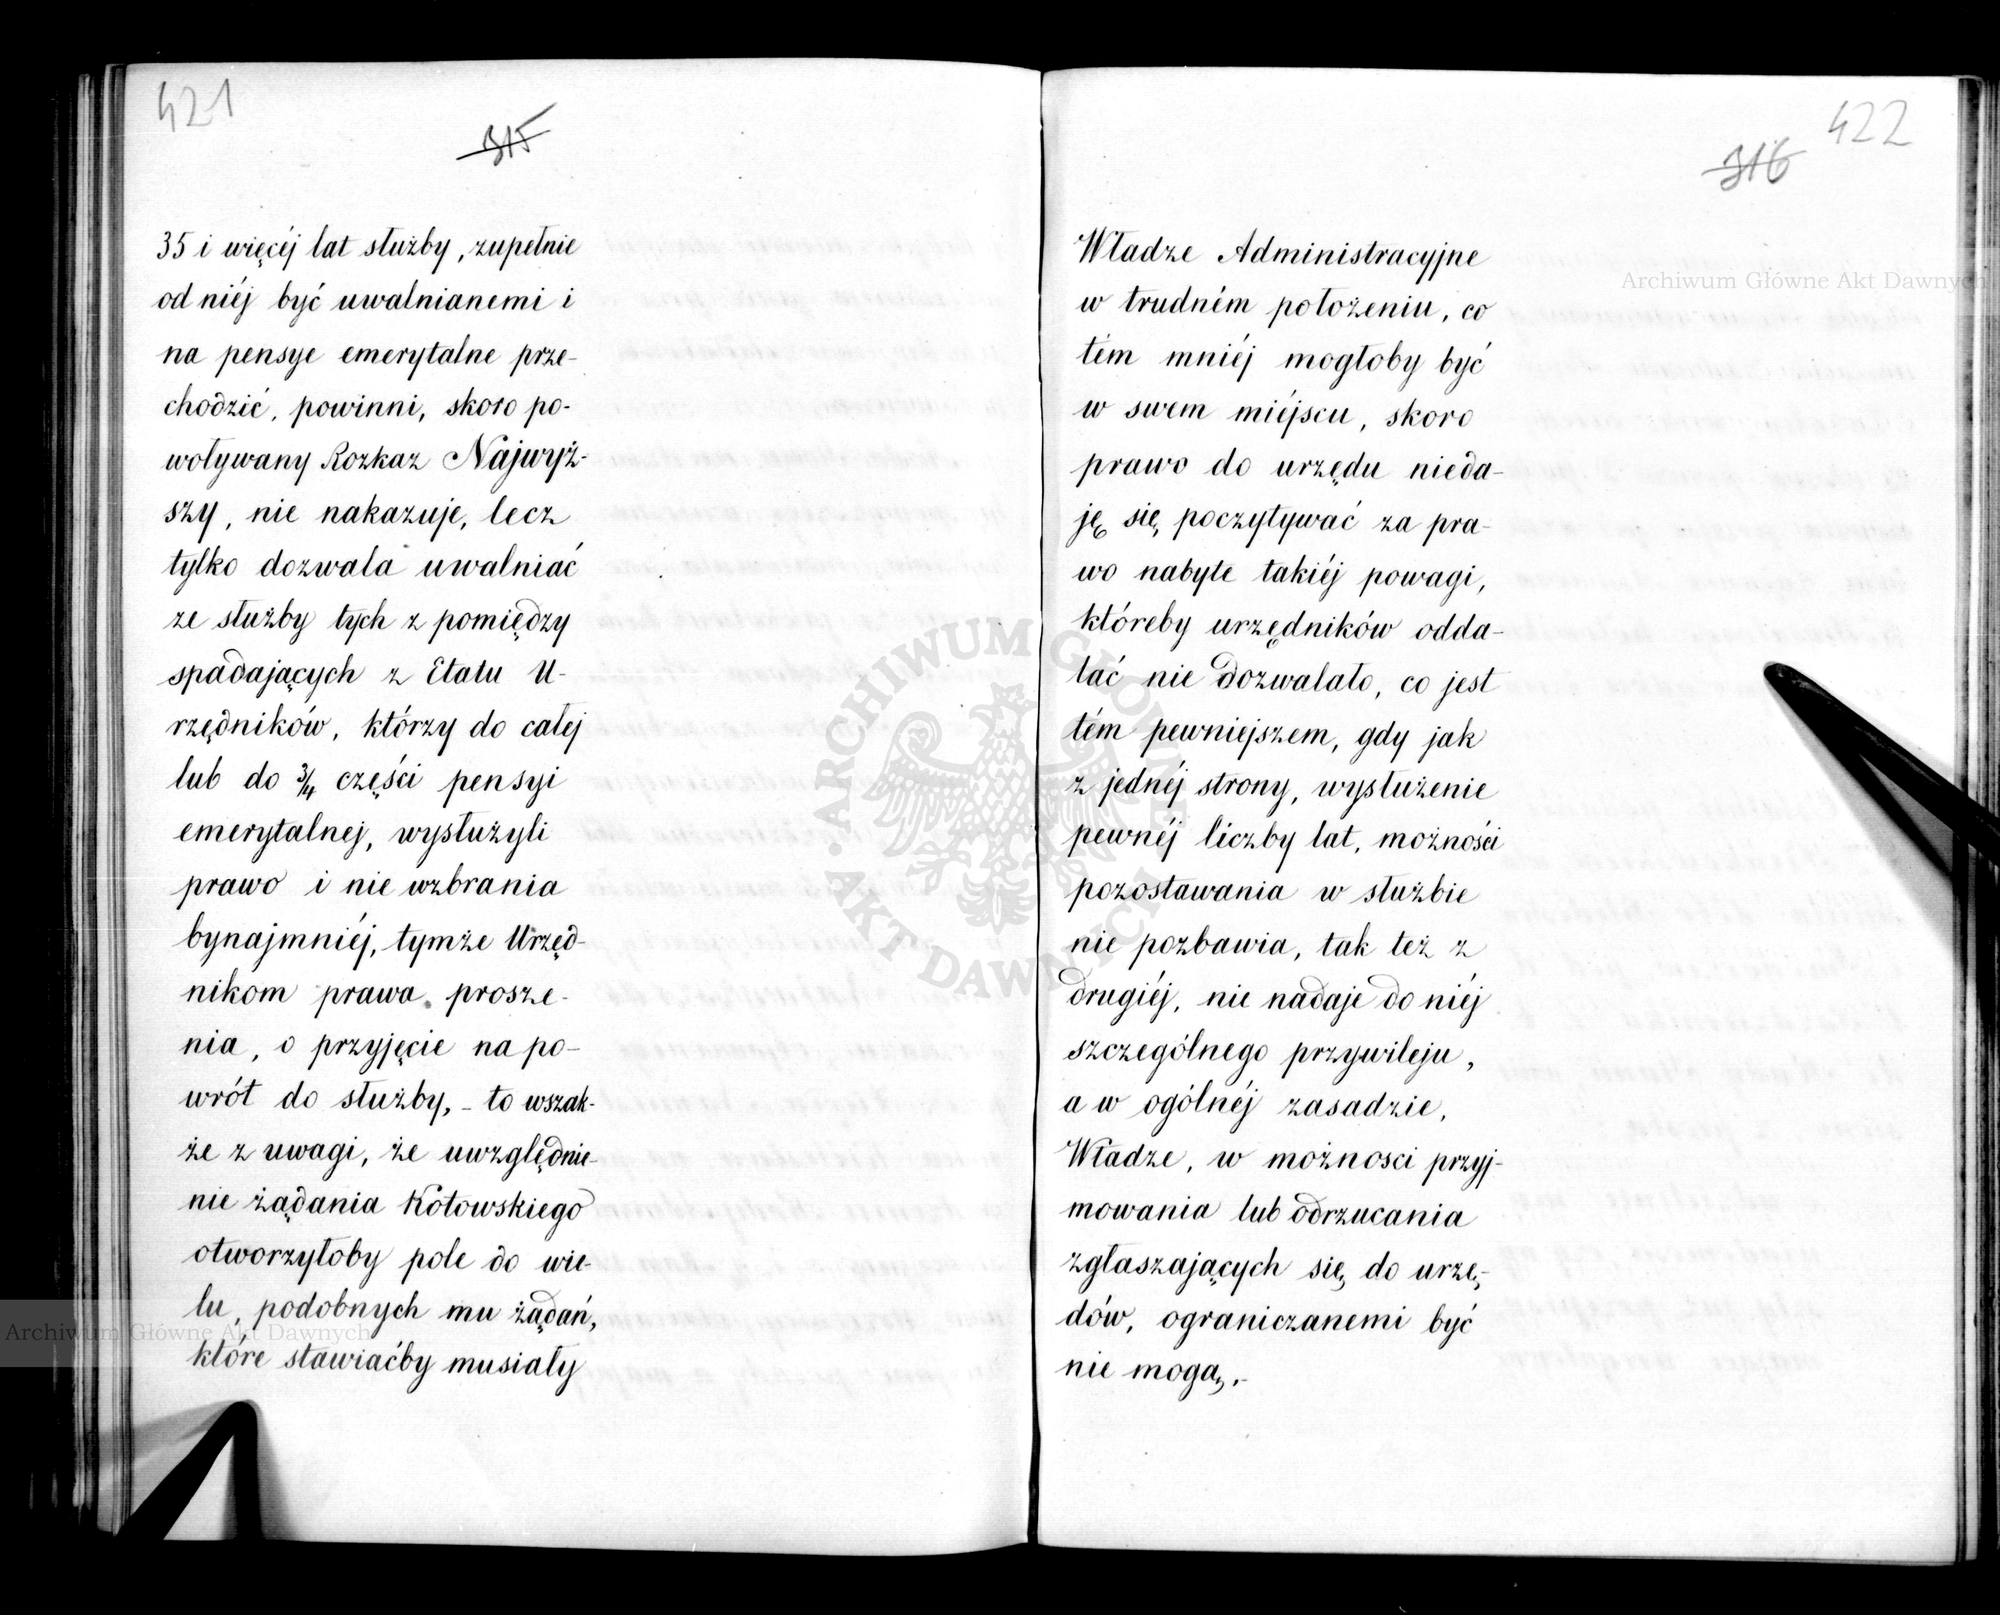 421
315
35 i więcéj lat służby, zupełnie
od niéj być uwalnianemi i
na pensye emerytalne prze-
chodzić, powinni, skoro po-
woływany Rozkaz Najwyż-
szy, nie nakazuje, lecz
tylko dozwala uwalniać
ze służby tych z pomiędzy
spadających z Etatu U-
rzędników, którzy do całej
lub do 3/4 części pensyi
emerytalnej, wysłużyli
prawo i nie wzbrania
bynajmniéj, tymże Urzęd-
nikom prawa prosze-
nia, o przyjęcie na po-
wrót do służby, - to wszak-
że z uwagi, że uwzględnie-
nie żądania Kotowskiego
otworzyłoby pole do wie-
lu, podobnych mu żądań,
które stawiaćby musiały
422
316
Władze Administracyjne
w trudném położeniu, co
tém mniéj mogłoby być
w swem miéjscu, skoro
prawo do urzędu nieda-
ję się poczytywać za pra-
wo nabyte takiéj powagi,
któreby urzędników odda-
lać nie dozwalało, co jest
tém pewniejszem, gdy jak
z jednéj strony, wysłużenie
pewnéj liczby lat, możności
pozostawania w służbie
nie pozbawia, tak też z
drugiéj, nie nadaje do niéj
szczególnego przywileju,
a w ogólnéj zasadzie,
Władze, w możnosci przyj-
mowania lub odrzucania
zgłaszających się do urzę-
dów, ograniczanemi być
nie mogą.-
Archiwum Główne Akt Dawnych
ARCHIWUM GŁÓWNE
AKT DAWNYCH
Archiwum Główne Akt Dawnych